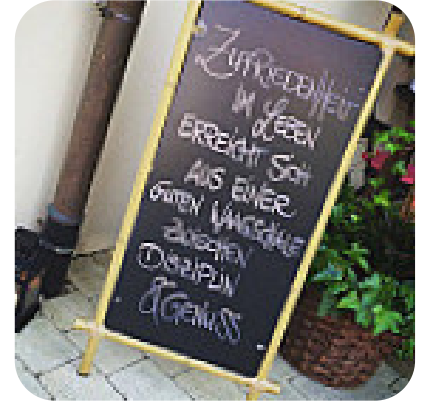 ZUFRIEDENHEIT
IM LEBEN
ERREICHT SICH
AUS EINER
GUTEN WAAGSCHALE
ZWISCHEN
DISZIPLIN
& GENUSS